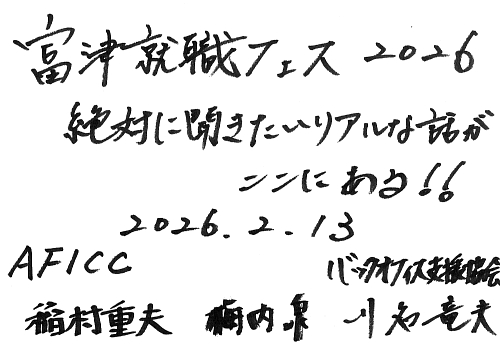 富津就職フェス 2026
絶対に聞きたいリアルな話が
ここにある!!
2026.2.13
AFICC
バックオフィス支援協会
稲村重夫 梅内泉 川名竜夫